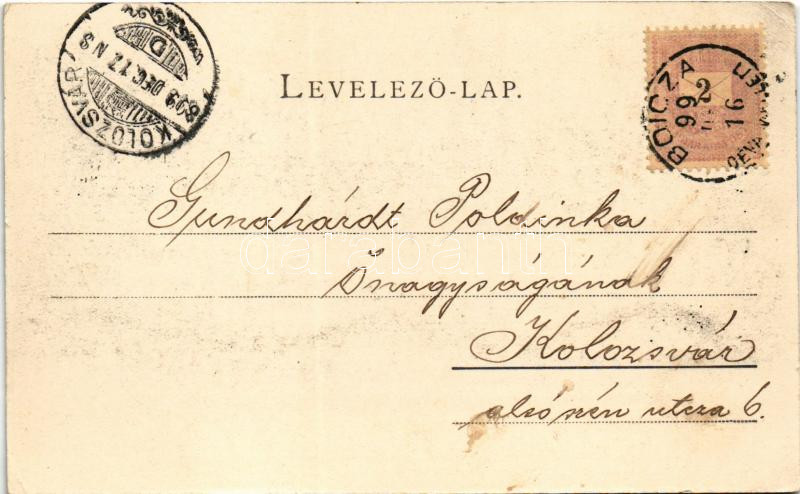 KOLOZSVÁR
899 DEC. 17 N 8
D
LEVELEZŐ-LAP.
2
BOICZA
99
16
Gundhárdt Poldinka
Őnagyságának
Kolozsvár
alsószén utcza 6.
darabanth